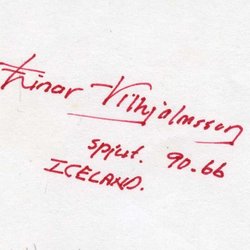 Einar Vilhjálmsson
spjut. 90.66
ICELAND.